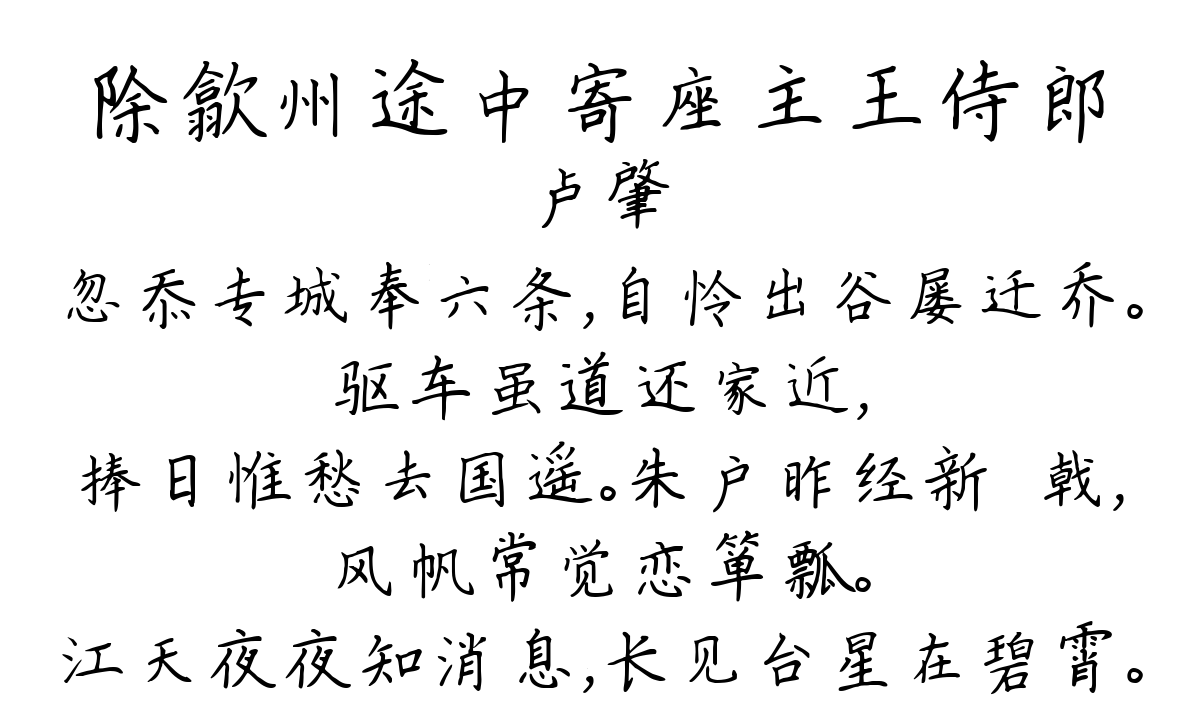 除歙州途中寄座主王侍郎
卢肇
忽忝专城奉六条,自怜出谷屡迁乔。
驱车虽道还家近,
捧日惟愁去国遥。朱户昨经新 戟,
风帆常觉恋箪瓢。
江天夜夜知消息,长见台星在碧霄。